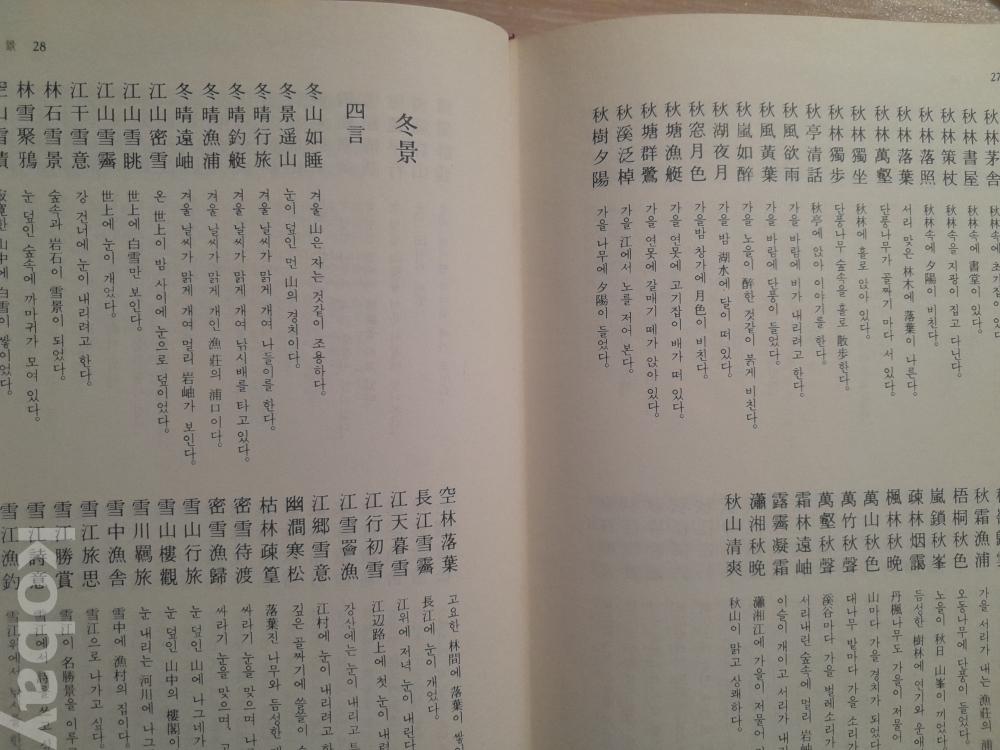 27
秋林茅舍 秋林속에 초가집이 있다
秋林書屋 秋林속에 書堂이 있다.
秋林策杖 秋林속을 지팡이 집고 다닌다.
秋林落照 秋林속에 夕陽이 비친다.
秋林落葉 서리 맞은 林木에 落葉이 나른다.
秋林萬壑 단풍나무가 골짜기 마다 서 있다.
秋林獨坐 秋林에 홀로 앉아 있다.
秋林獨步 단풍나무 숲속을 홀로 散步한다.
秋亭清話 秋亭에 앉아 이야기를 한다.
秋風欲雨 가을 바람에 비가 내리려고 한다.
秋風黃葉 가을 바람에 단풍이 들었다.
秋嵐如醉 가을 노을이 醉한것같이 붉게 비친다.
秋湖夜月 가을 밤 湖水에 달이 떠 있다.
秋窓月色 가을밤 창가에 月色이 비친다.
秋塘漁艇 가을 연못에 고기잡이 배가 떠 있다.
秋塘群鷺 가을 연못에 갈매기 떼가 앉아 있다.
秋溪泛棹 가을 江에서 노를 저어 본다.
秋樹夕陽 가을 나무에 夕陽이 들었다.
秋霜漁浦 가을 서리가 내는 漁莊의
梧桐秋色 오동나무에 단풍이 들었다.
嵐鎖秋峯 노을이 秋日 山峯이 끼었다.
疎林烟靄 듬성한 樹林에 연기와 운애
楓林秋晚 丹楓나무도 가을이 저물어
萬山秋色 山마다 가을 경치가 되었다
萬竹秋聲 대나무 밭마다 가을 소리
萬壑秋聲 溪谷마다 가을 벌레소리가
霜林遠岫 서리내린 숲속에 멀리 岩岫
露霽凝霜 이슬이 개이고 서리가 내
瀟湘秋晚 瀟湘江에 가을이 저물어
秋山清爽 秋山이 맑고 상쾌하다.
景 28
冬景
四言
冬山如睡 겨울 山은 자는 것같이 조용하다.
冬景遥山 눈이 덮인 먼 山의 경치이다.
冬晴行旅 겨울 날씨가 맑게 개여 나들이를 한다.
冬晴釣艇 겨울 날씨가 맑게 개여 낚시배를 타고있다.
冬晴漁浦 겨울 날씨가 맑게 개인 漁莊의 浦口이다.
冬晴遠岫 겨울 날씨가 맑게 개여 멀리 岩岫가 보인다.
江山密雪 온 世上이 밤 사이에 눈으로 덮이었다.
江山雪眺 世上에 白雪만 보인다.
江山雪霽 世上에 눈이 개었다.
江干雪意 강 건너에 눈이 내리려고 한다.
林石雪景 숲속과 岩石이 雪景이 되었다.
林雪聚鴉 눈 덮인 숲속에 까마귀가 모여 있다.
空山雪積 寂寬한 山中에 白雪이 쌓이었다.
空林落葉 고요한 林間에 落葉이
長江雪霽 長江에 눈이 개었다.
江天暮雪 江위에 저녁 눈이 내린다
江行初雪 江辺路上에 첫 눈이 내
江雪罾漁 강산에는 눈이 내리고
江郷雪意 江村에 눈이 내리려고
幽澗寒松 깊은 골짜기에 쓸쓸이
枯林疎篁 落葉진 나무와 듬성한
密雪待渡 싸라기 눈을 맞으며 나
密雪漁歸 싸라기 눈을 맞으며,
雪山行旅 눈 덮인 山에 나그네가
雪山樓觀 눈 덮인 山中의 樓閣이
雪川羈旅 눈 내리는 河川에 나그
雪中漁舍 雪中에 漁村의 집이다.
雪江旅思 雪江으로 나가고 싶다.
雪江勝賞 雪江이 名勝景을 이루
雪江詩意 雪江에서 詩想
雪江漁釣 雪江위에서
kobay